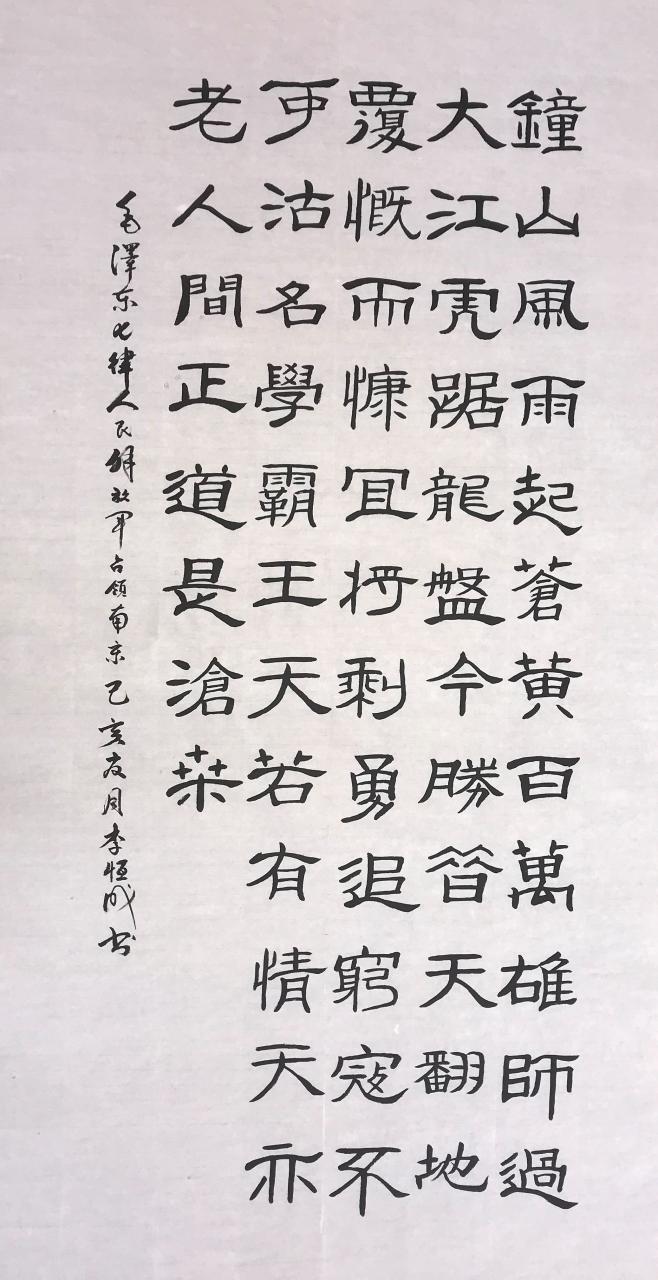 鐘山風雨起蒼黃百萬雄師過
大江虎踞龍盤今勝昔天翻地
覆慨而慷宜將剩勇追窮寇不
可沽名學霸王天若有情天亦
老人間正道是滄桑
毛澤東七律人民解放軍占領南京己亥夜月李恒成書